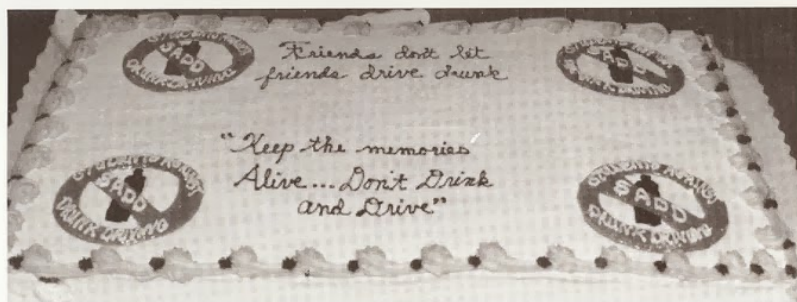 STUDENTS AGAINST
SADD
DRUNK DRIVING
Friends don't let
friends drive drunk
STUDENTS AGAINST
SADD
DRUNK DRIVING
"Keep the memories
Alive... Don't Drink
and Drive"
STUDENTS AGAINST
SADD
DRUNK DRIVING
STUDENTS AGAINST
SADD
DRUNK DRIVING